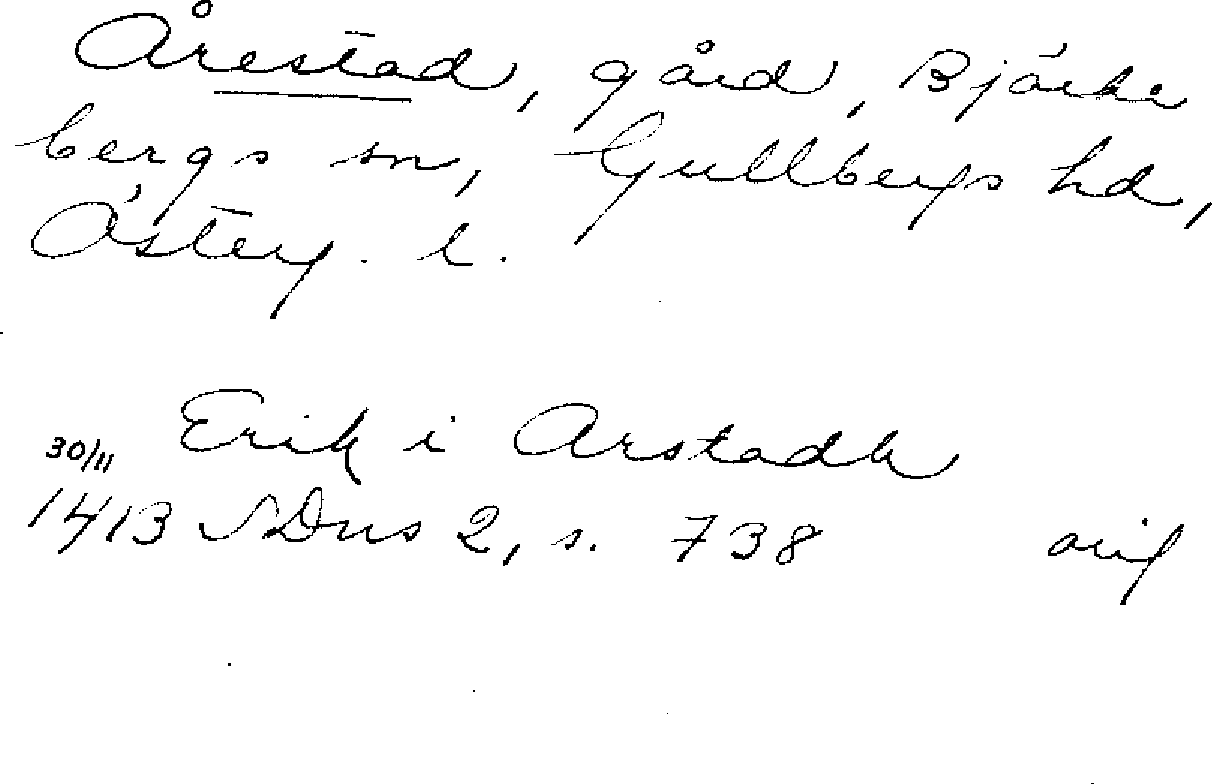 Årestad, gård, Björke
bergs sn, Gullbergs hd,
Österg. l.
Erik i Arstadh
30/11
1413 SDns 2, s. 738 orig